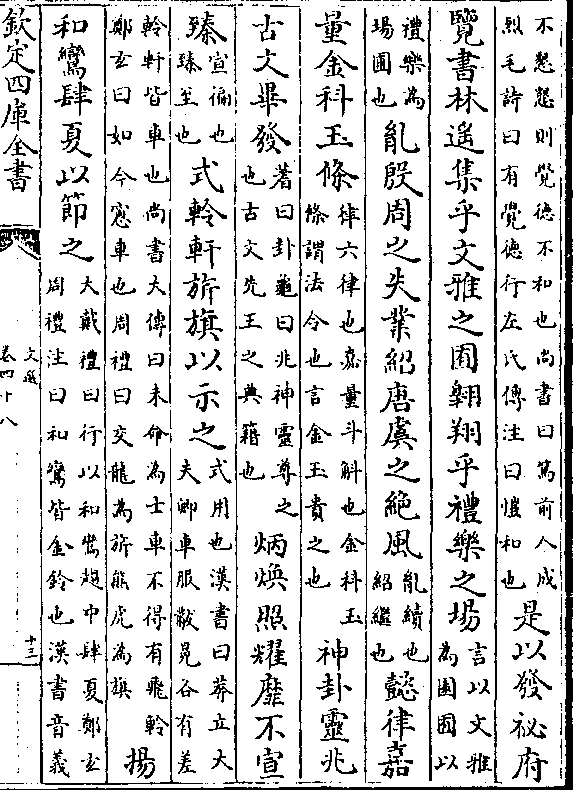 不懇懇則覺德不和也尚書曰篤前人成烈毛詩曰有覺德行左氏傳注曰愷和也是以發祕府
覽書林遙集乎文雅之囿翱翔乎禮樂之場言以文雅為囿囿以
禮樂為場圃也胤殷周之失業紹唐虞之絕風胤續也紹繼也懿律嘉
量金科玉條律六律也嘉量斗斛也金科玉條謂法令也言金玉貴之也神卦靈兆
古文畢發著曰卦龜曰兆神靈尊之也古文先王之典籍也炳煥照耀靡不宣
臻宣徧也臻至也式軨軒旂旗以示之式用也漢書曰莽立大夫卿車服黻冕各有差
軨軒皆車也尚書大傳曰未命為士車不得有飛軨鄭玄曰如今窻車也周禮曰交龍為旂熊虎為旗揚
和鸞肆夏以節之大戴禮曰行以和鸞趨中肆夏鄭玄周禮注曰和鸞皆金鈴也漢書音義
欽定四庫全書
文選
卷四十八
十三